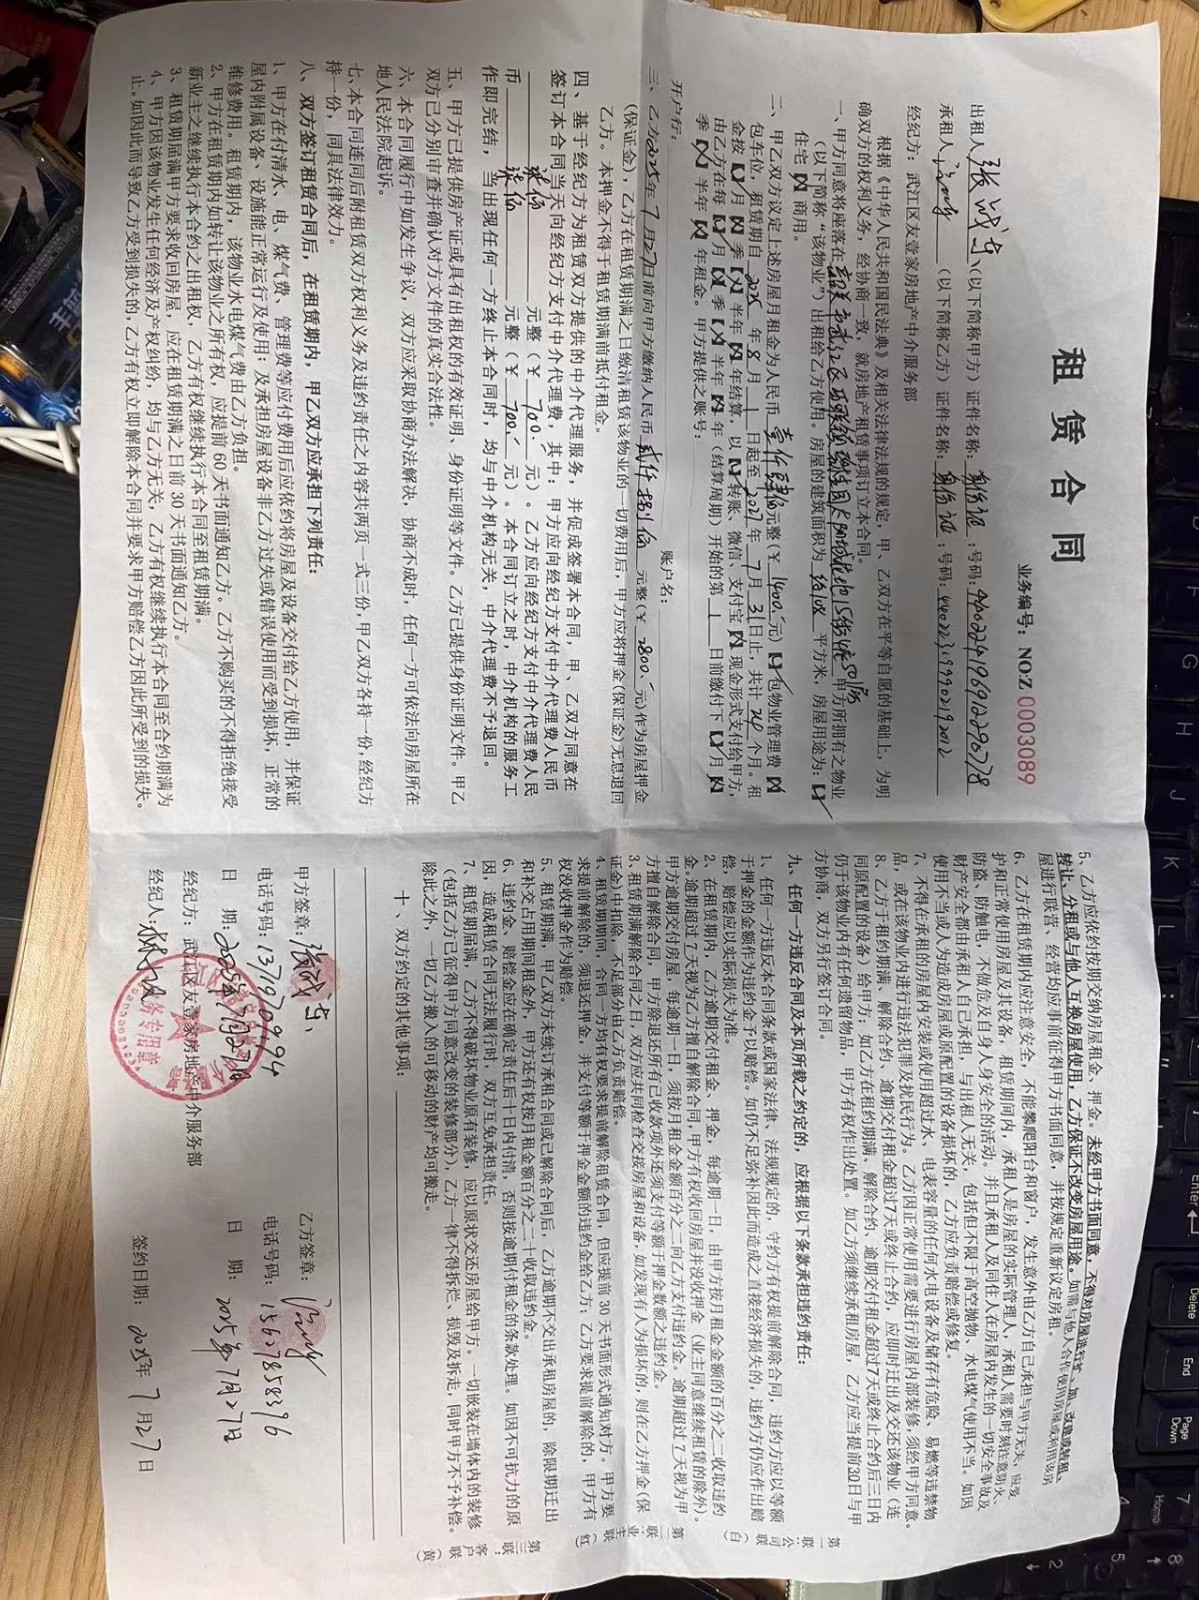 租赁合同
业务编号：NO:Z 0003089
出租人：张（以下简称甲方）证件名称：身份证：号码：
承租人：（以下简称乙方）证件名称：身份证：号码：
经纪方：武江区友壹家房地产中介服务部
根据《中华人民共和国民法典》及相关法律法规的规定，甲、乙双方在平等自愿的基础上，为明
确双方的权利义务，经协商一致，就房地产租赁事项订立本合同。
一、甲方同意将座落在韶关市武江区 甲方所拥有之物业
（以下简称“该物业”）出租给乙方使用。房屋的建筑面积为 平方米，房屋用途为：
住宅 商用。
二、甲乙双方议定上述房屋月租金为人民币壹仟肆佰元整（￥1400.元） 包物业管理费
包车位，租赁期自2025年8月1日起至2027年7月31日止，共计24个月。租
金按 月 季 半年 年结算，以 转账、微信、支付宝 现金形式支付给甲方，
由乙方在每 月 季 半年 年（结算周期）开始的第1日前缴付下 月
季 半年 年租金。甲方提供之账号：
开户行： 账户名：
三、乙方2025年7月27日前向甲方缴纳人民币贰仟捌佰元整（￥2800.元）作为房屋押金
（保证金），乙方在租赁期满之日缴清租赁该物业的一切费用后，甲方应将押金（保证金）无息退回
乙方。本押金不得于租赁期满前抵付租金。
四、基于经纪方为租赁双方提供的中介代理服务，并促成签署本合同，甲、乙双方同意在
签订本合同当天向经纪方支付中介代理费，其中：甲方应向经纪方支付中介代理费人民币
柒佰元整（￥700.元）。乙方应向经纪方支付中介代理费人民
币柒佰元整（￥700.元）。本合同订立之时，中介机构的服务工
作即完结，当出现任何一方终止本合同时，均与中介机构无关，中介代理费不予退回。
五、甲方已提供房产证或具有出租权的有效证明、身份证明等文件。乙方已提供身份证明文件。甲乙
双方已分别审查并确认对方文件的真实合法性。
六、本合同履行中如发生争议，双方应采取协商办法解决，协商不成时，任何一方可依法向房屋所在
地人民法院起诉。
七、本合同连同后附租赁双方权利义务及违约责任之内容共两页一式三份，甲乙双方各持一份，经纪方
持一份，同具法律效力。
八、双方签订租赁合同后，在租赁期内，甲乙双方应承担下列责任：
1、甲方在付清水、电、煤气费、管理费等应付费用后应依约将房屋及设备交付给乙方使用，并保证
屋内附属设备、设施能正常运行及使用；及承担房屋设备非乙方过失或错误使用而受到损坏，正常的
维修费用。租赁期内，该物业水电煤气费由乙方负担。
2、甲方在租赁期内如转让该物业之所有权，应提前60天书面通知乙方。乙方不购买的不得拒绝接受
新业主之继续执行本合约之出租权，乙方有权继续执行本合同至租赁期满。
3、租赁期届满甲方要求收回房屋，应在租赁期满之日前30天书面通知乙方。
4、甲方因该物业发生任何经济及产权纠纷，均与乙方无关，乙方有权继续执行本合同至合约期满为
止。如因此而导致乙方受到损失的，乙方有权立即解除本合同并要求甲方赔偿乙方因此所受到的损失。
5、乙方应依约按期交纳房屋租金、押金。未经甲方书面同意，不得对房屋进行扩、加、改建或转租、
转让、分租或与他人互换房屋使用，乙方保证不改变房屋用途。如需与他人合作使用房屋或利用该房
屋进行联营、经营均应事前征得甲方书面同意，并按规定重新议定房租。
6、乙方在租赁期内应注意安全，不能攀爬阳台和窗户，发生意外由乙方自己承担与甲方无关，应爱
护和正常使用房屋及其设备，租赁期间内，承租人是房屋的实际管理人，承租人需要时刻注意防火、
防盗、防触电，不做危及自身人身安全的活动。并且承租人及同住人在房屋内发生的一切安全事故及
财产安全都由承租人自己承担，与出租人无关，包括但不限于高空抛物、水电煤气使用不当。如因
使用不当或人为造成房屋或原配置的设备损坏的，乙方应负责赔偿或修复。
7、不得在承租的房屋内安装或使用超过水、电表容量的任何水电设备及储存有危险、易燃等违禁物
品，或在该物业内进行违法犯罪及扰民行为。乙方因正常使用需要进行房屋内部装修，须经甲方同意。
8、乙方于租约期满、解除合约、逾期交付租金超过7天或终止合约，应即时迁出及交还该物业（连
同原配置的设备）给甲方；如乙方在租约期满、解除合约、逾期交付租金超过7天或终止合约后三日内
仍于该物业内有任何遗留物品，甲方有权作出处置。如乙方须继续承租房屋，乙方应当提前30日与甲
方协商，双方另行签订合同。
九、任何一方违反合同及本页所载之约定的，应根据以下条款承担违约责任：
1、任何一方违反本合同条款或国家法律、法规规定的，守约方有权提前解除合同，违约方应以等额
于押金的金额作为违约金予以赔偿。如仍不足弥补因此而造成之直接经济损失的，违约方仍应作出赔
偿，赔偿应以实际损失为准。
2、在租赁期内，乙方逾期交付租金、押金，每逾期一日，由甲方按月租金金额的百分之二收取违约
金。逾期超过7天视为乙方擅自解除合同，甲方有权收回房屋并没收押金（业主同意继续租赁的除外）。
甲方逾期交付房屋，每逾期一日，须按月租金金额百分之二向乙方支付违约金。逾期超过7天视为甲
方擅自解除合同，甲方除退还所有已收款项外还须支付等额于押金数额之违约金。
3、租赁期满解除合同之日，双方应共同检查交接房屋和设备，如发现有人为损坏的，则在乙方押金（保
证金）中扣除，不足部分由乙方负责赔偿。
4、租赁期期间，合同一方均有权要求提前解除租赁合同，但应提前30天书面形式通知对方。甲方要
求提前解除的，须退还押金，并支付等额于押金金额的违约金给乙方；乙方要求提前解除的，甲方有
权没收押金作为赔偿。
5、租赁期满，甲乙双方未续订承租合同或已解除合同后，乙方逾期不交出承租房屋的，除限期迁出
和补交占用期间租金外，甲方还有权按月租金额百分之二十收取违约金。
6、违约金、赔偿金应在确定责任后十日内付清，否则按逾期付租金的条款处理。如因不可抗力的原
因，造成租赁合同无法履行时，双方互免承担责任。
7、租赁期届满，乙方不得破坏物业原有装修，应以原状交还房屋给甲方。一切嵌装在墙体内的装修
（包括乙方已征得甲方同意改变的装修部分），乙方一律不得拆烂、损毁及拆走，同时甲方不予补偿。
除此之外，一切乙方搬入的可移动的财产均可搬走。
十、双方约定的其他事项：
甲方签章： 乙方签章：
电话号码：13719709194 电话号码：15627858396
日 期：2025年7月27日 日 期：2025年7月27日
经纪方：武江区友壹家房地产中介服务部
经纪人： 签约日期：2025年7月27日
业务专用章
第一联：公司联（白）
第二联：业主联（红）
第三联：客户联（黄）